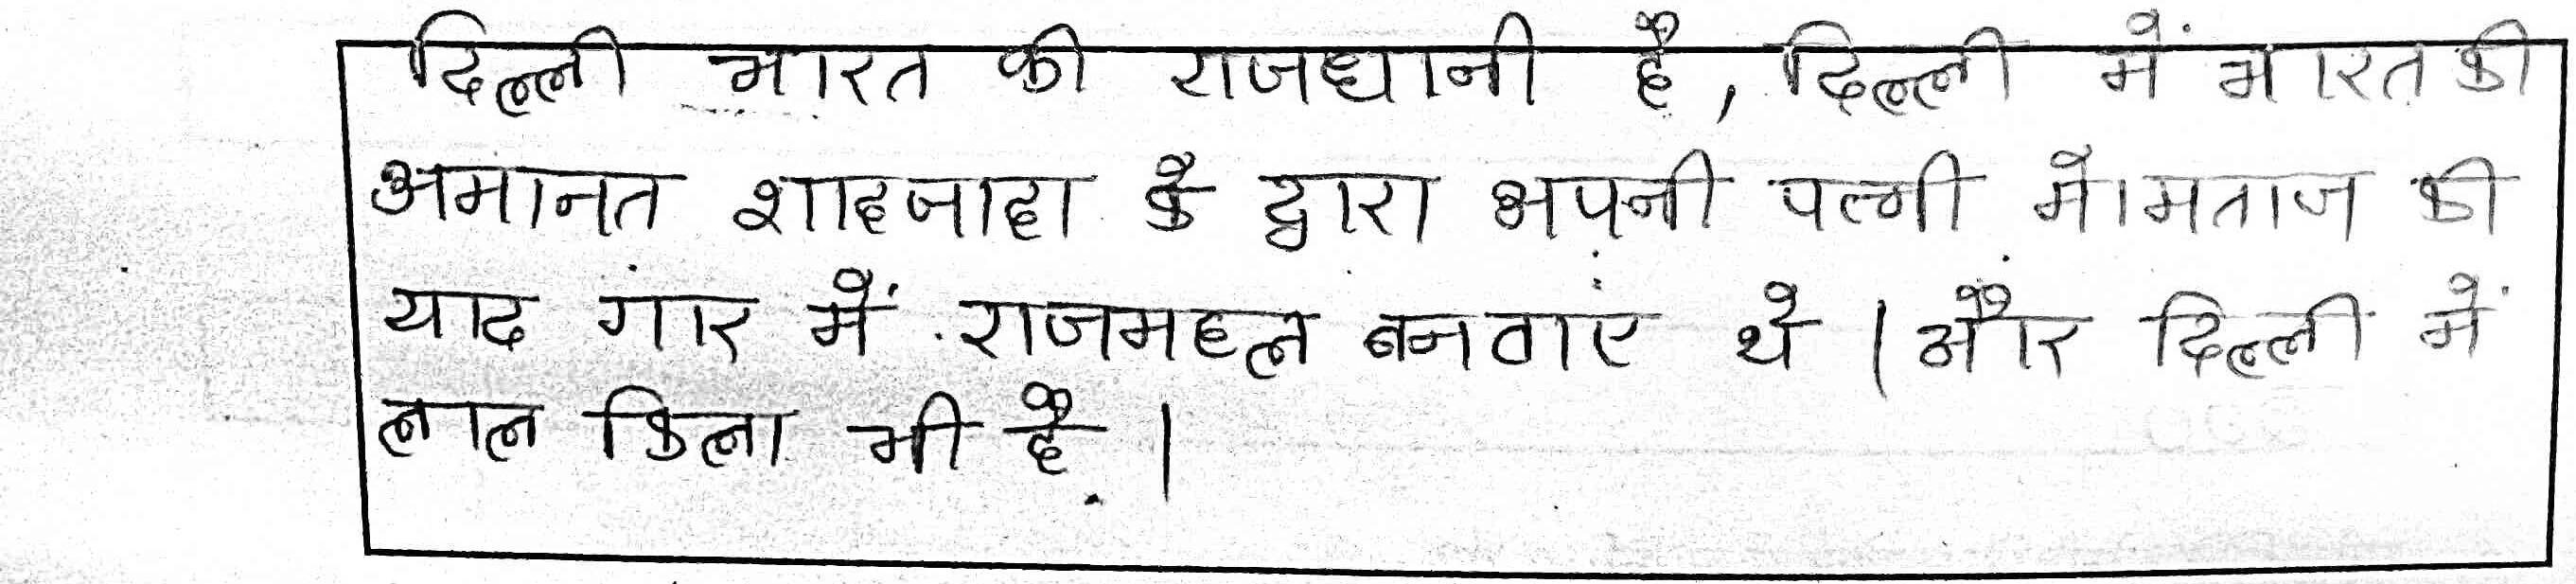 दिल्ली भारत की राजधानी है, दिल्ली में भारत की
अमानत शाहजाहा के द्वारा अपनी पत्नी मोमताज की
याद गार में राजमहल बनवाए थे । और दिल्ली में
लाल किला भी है ।